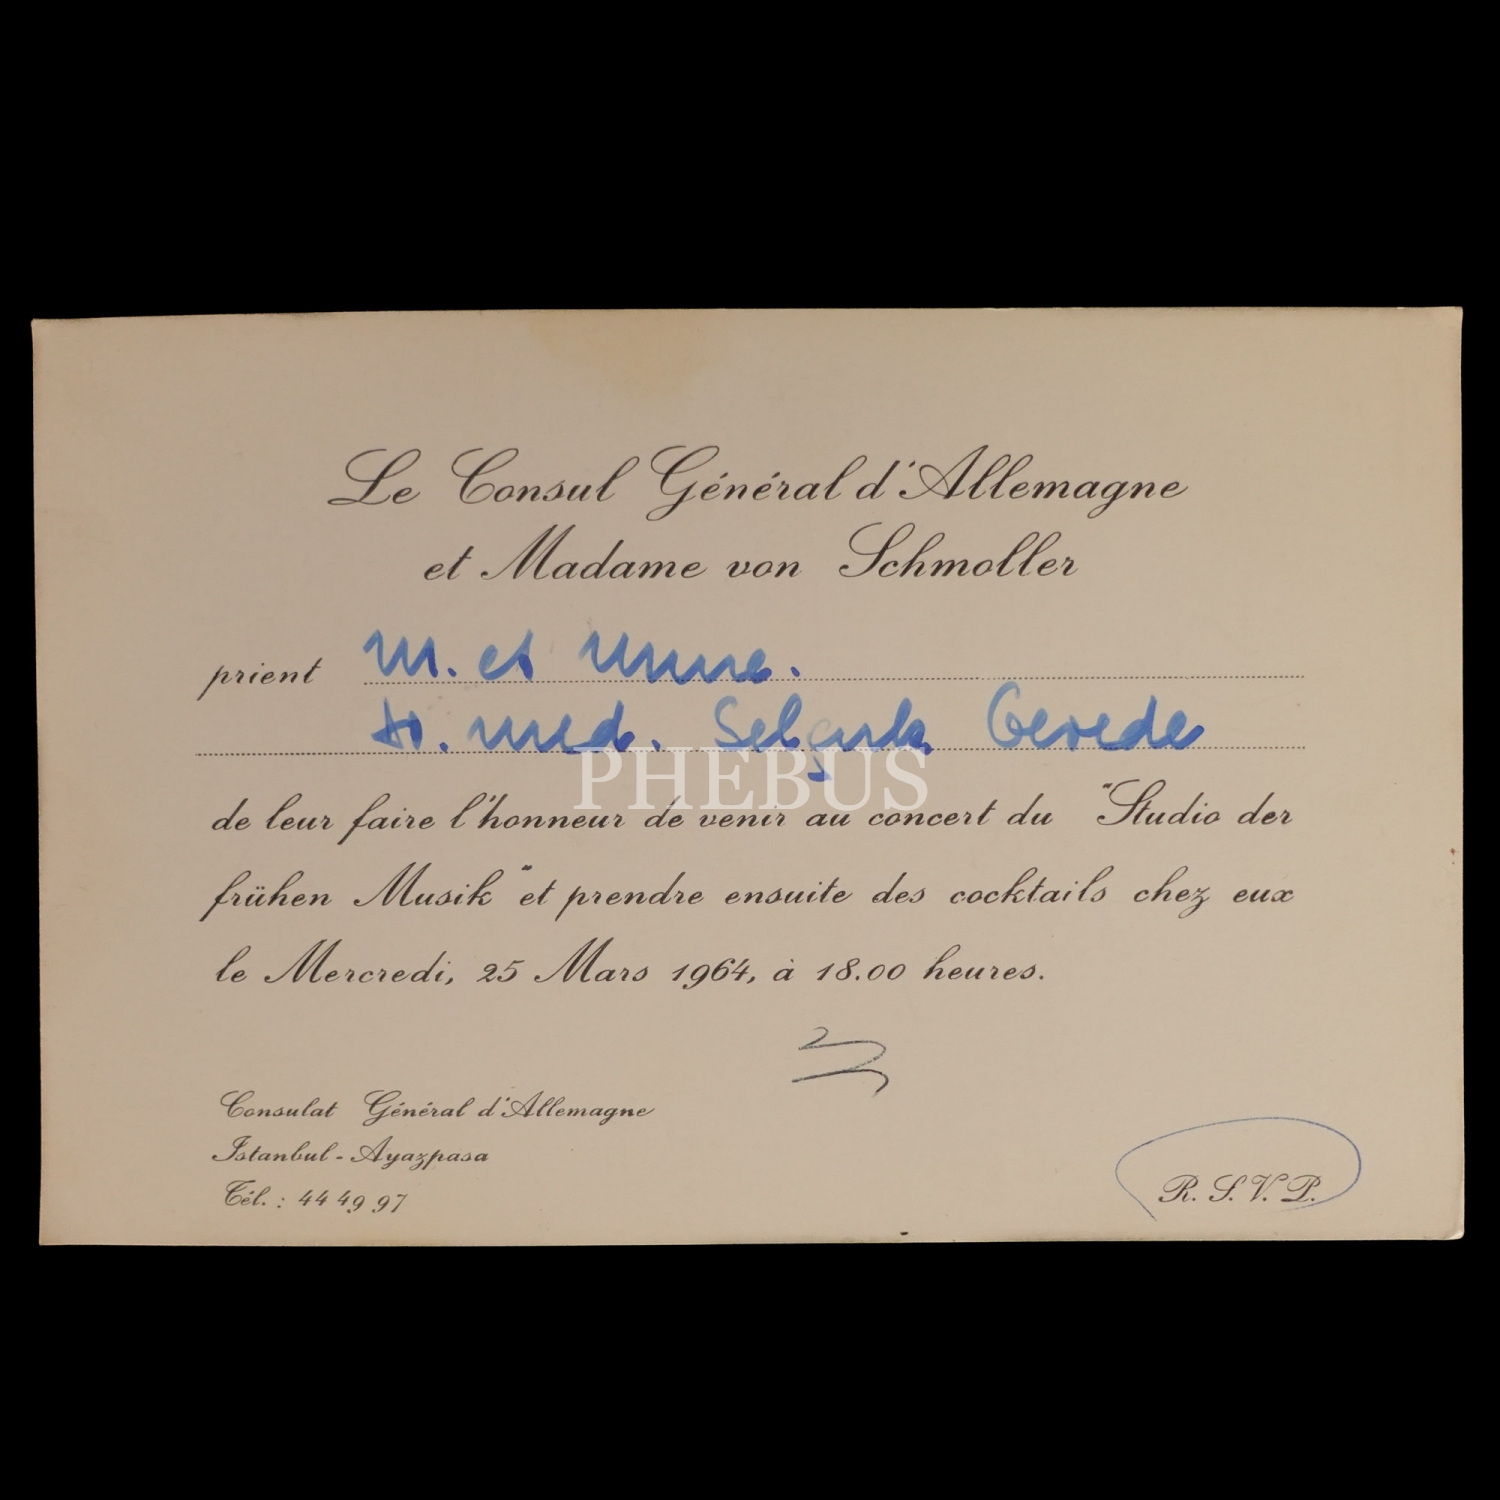 Le Consul Général d'Allemagne
et Madame von Schmoller
prient M. et Mme.
Dr. med. Selçuk Gerede
PHEBUS
de leur faire l'honneur de venir au concert du "Studio der
frühen Musik" et prendre ensuite des cocktails chez eux
le Mercredi, 25 Mars 1964, à 18.00 heures.
Consulat Général d'Allemagne
Istanbul - Ayazpasa
Tél. : 44 49 97
R. S. V. P.